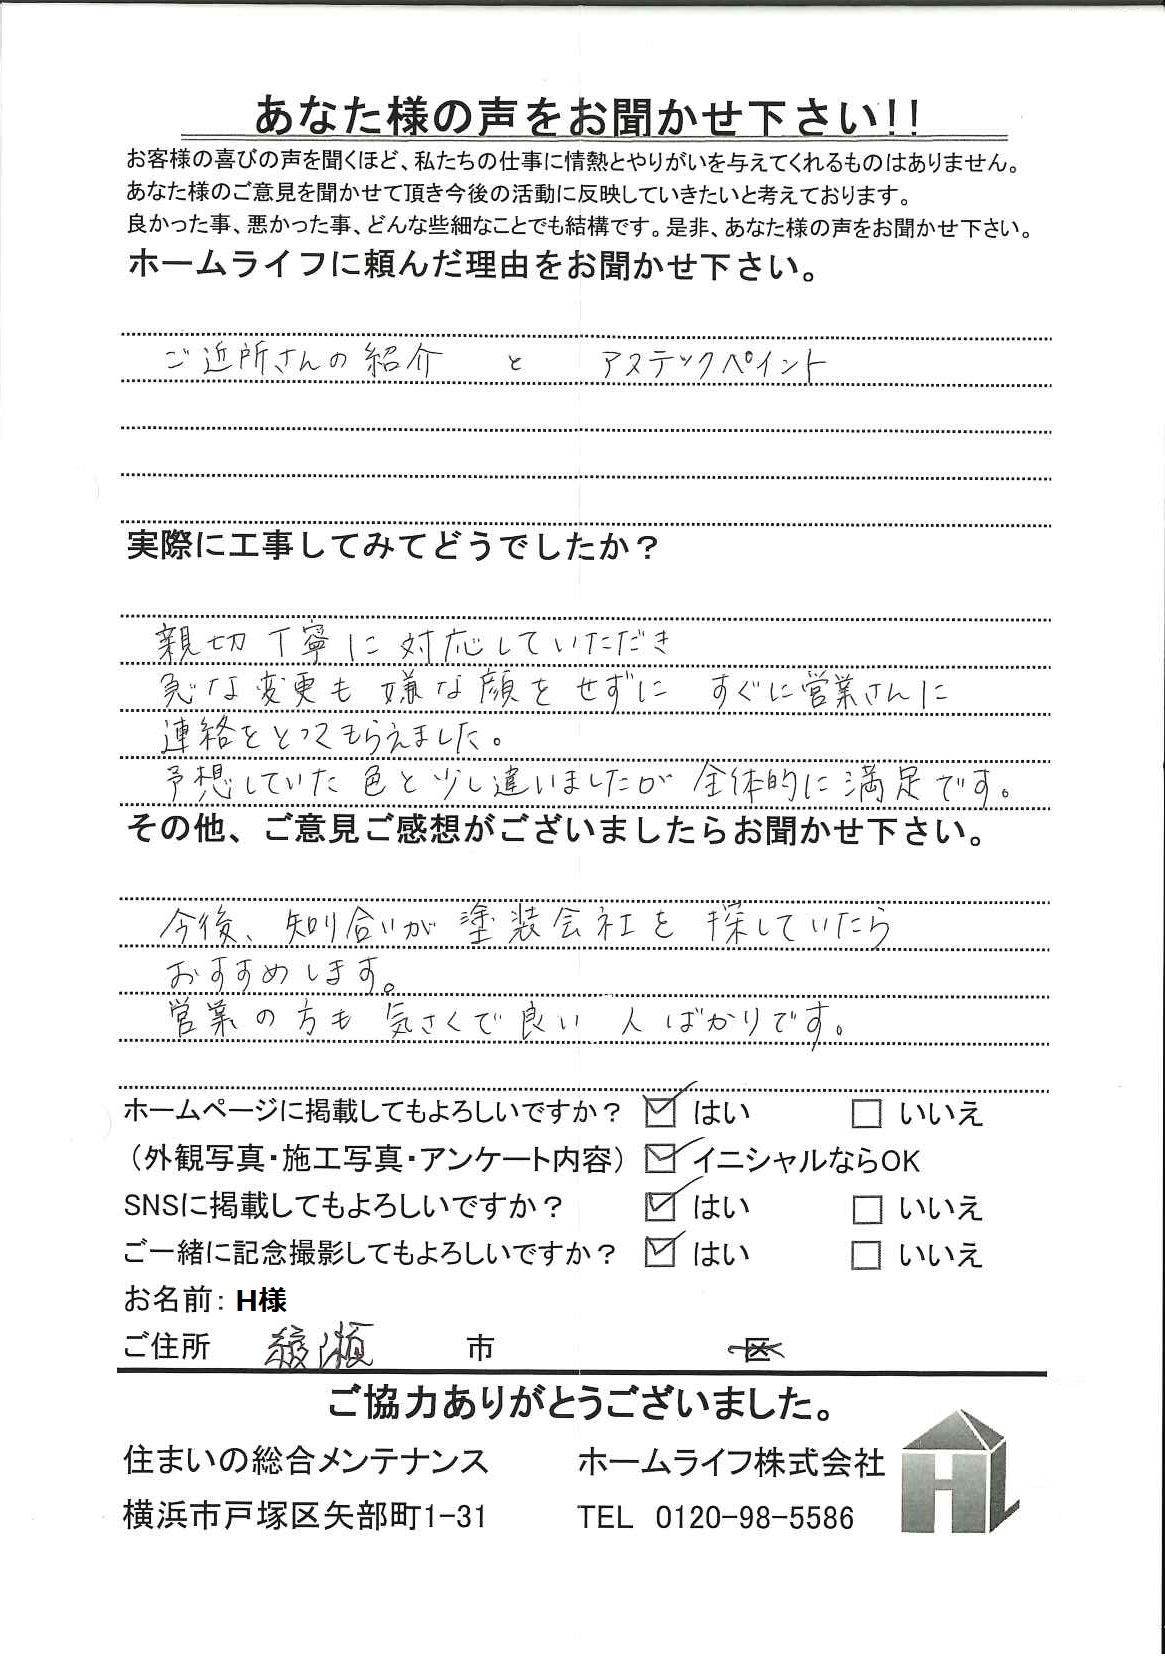 あなた様の声をお聞かせ下さい!!
お客様の喜びの声を聞くほど、私たちの仕事に情熱とやりがいを与えてくれるものはありません。
あなた様のご意見を聞かせて頂き今後の活動に反映していきたいと考えております。
良かった事、悪かった事、どんな些細なことでも結構です。是非、あなた様の声をお聞かせ下さい。
ホームライフに頼んだ理由をお聞かせ下さい。
ご近所さんの紹介 と アステックペイント
実際に工事してみてどうでしたか？
親切丁寧に対応していただき
急な変更も嫌な顔をせずに すぐに営業さんに
連絡をとってもらえました。
予想していた色と少し違いましたが 全体的に満足です。
その他、ご意見ご感想がございましたらお聞かせ下さい。
今後、知り合いが塗装会社を探していたら
おすすめします。
営業の方も気さくで良い人ばかりです。
ホームページに掲載してもよろしいですか？ ☑ はい □ いいえ
（外観写真・施工写真・アンケート内容） ☑ イニシャルならOK
SNSに掲載してもよろしいですか？ ☑ はい □ いいえ
ご一緒に記念撮影してもよろしいですか？ ☑ はい □ いいえ
お名前: H様
ご住所 綾瀬 市 区
ご協力ありがとうございました。
住まいの総合メンテナンス ホームライフ株式会社
横浜市戸塚区矢部町1-31 TEL 0120-98-5586
HL